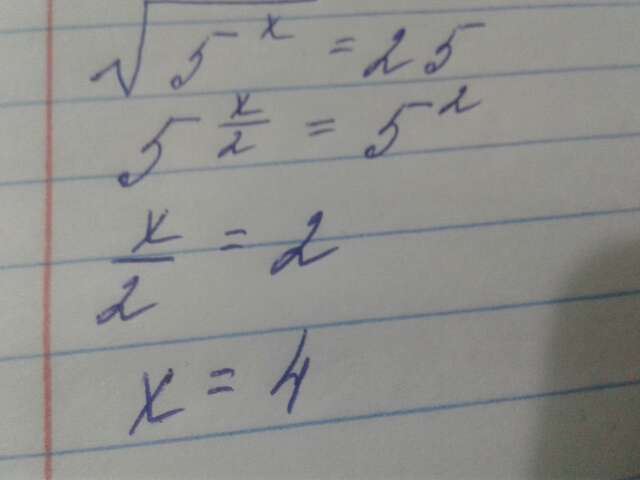 √5^x = 25
5^(x/2) = 5^2
x/2 = 2
x = 4